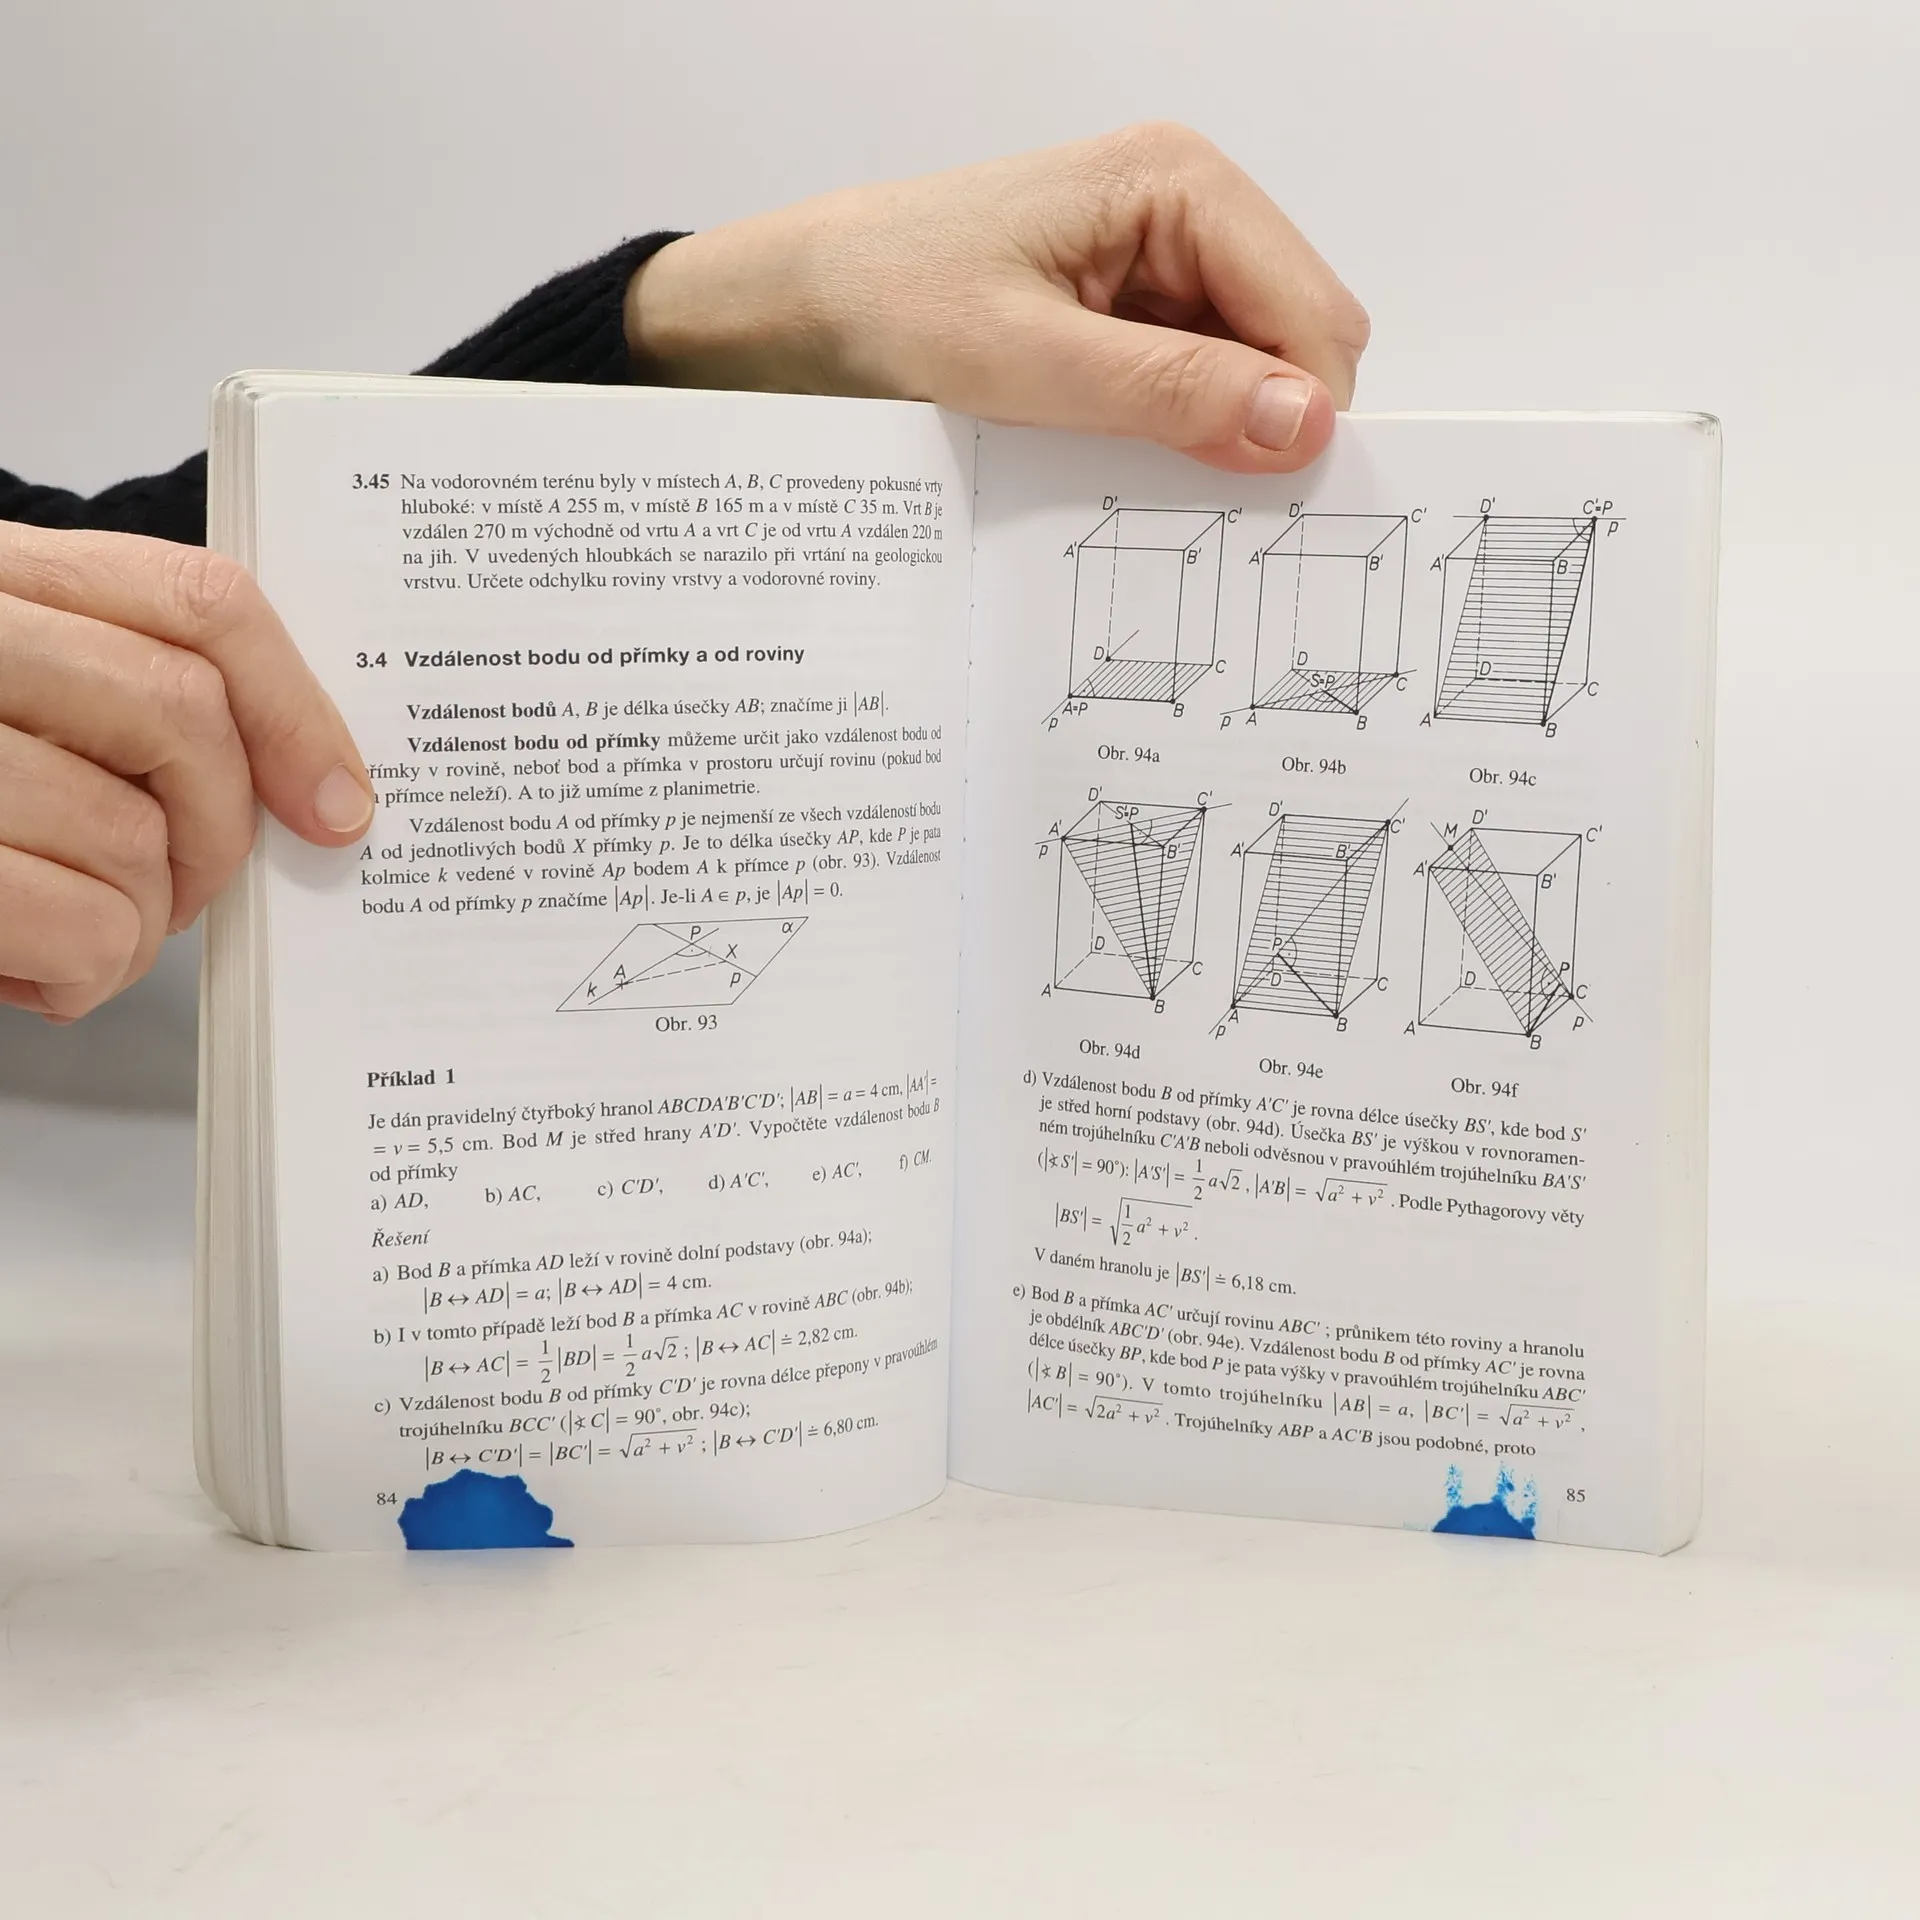 3.45 Na vodorovném terénu byly v místech A, B, C provedeny pokusné vrty
hluboké: v místě A 255 m, v místě B 165 m a v místě C 35 m. Vrt B je
vzdálen 270 m východně od vrtu A a vrt C je od vrtu A vzdálen 220 m
na jih. V uvedených hloubkách se narazilo při vrtání na geologickou
vrstvu. Určete odchylku roviny vrstvy a vodorovné roviny.
3.4 Vzdálenost bodu od přímky a od roviny
Vzdálenost bodů A, B je délka úsečky AB; značíme ji |AB|.
Vzdálenost bodu od přímky můžeme určit jako vzdálenost bodu od
římky v rovině, neboť bod a přímka v prostoru určují rovinu (pokud bod
přímce neleží). A to již umíme z planimetrie.
Vzdálenost bodu A od přímky p je nejmenší ze všech vzdáleností bodu
A od jednotlivých bodů X přímky p. Je to délka úsečky AP, kde P je pata
kolmice k vedené v rovině Ap bodem A k přímce p (obr. 93). Vzdálenost
bodu A od přímky p značíme |Ap|. Je-li A ∈ p, je |Ap| = 0.
P α
A X
k p
Obr. 93
Příklad 1
Je dán pravidelný čtyřboký hranol ABCDA'B'C'D'; |AB| = a = 4 cm, |AA'| =
= v = 5,5 cm. Bod M je střed hrany A'D'. Vypočtěte vzdálenost bodu B
od přímky
a) AD, b) AC, c) C'D', d) A'C', e) AC', f) CM.
Řešení
a) Bod B a přímka AD leží v rovině dolní podstavy (obr. 94a);
|B ↔ AD| = a; |B ↔ AD| = 4 cm.
b) I v tomto případě leží bod B a přímka AC v rovině ABC (obr. 94b);
|B ↔ AC| = 1/2 |BD| = 1/2 a√2; |B ↔ AC| ≐ 2,82 cm.
c) Vzdálenost bodu B od přímky C'D' je rovna délce přepony v pravoúhlém
trojúhelníku BCC' (|∢ C| = 90°, obr. 94c);
|B ↔ C'D'| = |BC'| = √a² + v²; |B ↔ C'D'| ≐ 6,80 cm.
84
D' C' D' C' D' C'=P
p
A' B' A' B' A' B'
D C D S=P C D C
A=P B p A B A B
p
Obr. 94a Obr. 94b Obr. 94c
D' S'=P C' D' C' M D' C'
A' B' A' B' A' B'
p
D C P D C D P C
A B A B A B p
p
Obr. 94d Obr. 94e Obr. 94f
d) Vzdálenost bodu B od přímky A'C' je rovna délce úsečky BS', kde bod S'
je střed horní podstavy (obr. 94d). Úsečka BS' je výškou v rovnoramen-
ném trojúhelníku C'A'B neboli odvěsnou v pravoúhlém trojúhelníku BA'S'
(|∢ S'| = 90°): |A'S'| = 1/2 a√2, |A'B| = √a² + v². Podle Pythagorovy věty
|BS'| = √1/2 a² + v².
V daném hranolu je |BS'| ≐ 6,18 cm.
e) Bod B a přímka AC' určují rovinu ABC'; průnikem této roviny a hranolu
je obdélník ABC'D' (obr. 94e). Vzdálenost bodu B od přímky AC' je rovna
délce úsečky BP, kde bod P je pata výšky v pravoúhlém trojúhelníku ABC'
(|∢ B| = 90°). V tomto trojúhelníku |AB| = a, |BC'| = √a² + v²,
|AC'| = √2a² + v². Trojúhelníky ABP a AC'B jsou podobné, proto
85